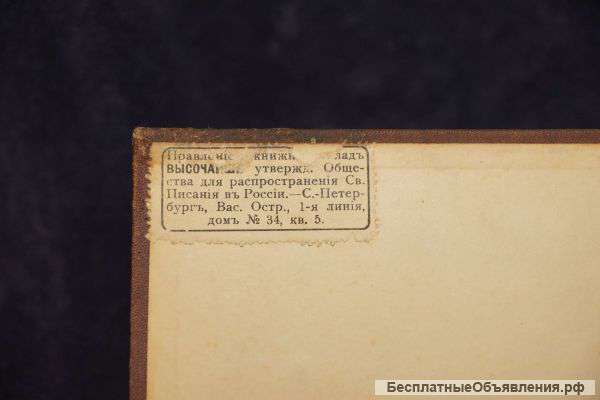 Правленіе книжн складъ
ВЫСОЧАЙШЕ утвержд. Обще-
ства для распространенія Св.
Писанія въ Россіи.—С.-Петер-
бургъ, Вас. Остр., 1-я линія,
домъ № 34, кв. 5.
БесплатныеОбъявления.рф